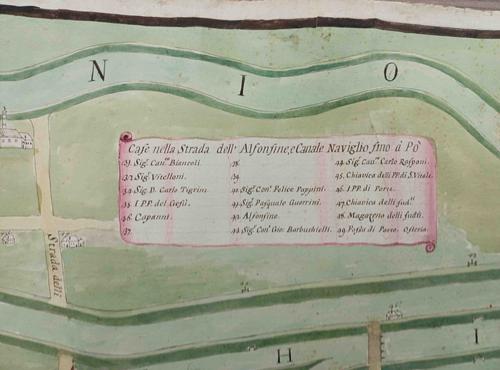 N I O
Case nella Strada dell' Alfonsine, e Canale Naviglio, fino à Pò
Sig.r Can.co Biancoli.
Sig.r Vitelloni.
34. Sig. D. Carlo Tigrini.
35. I P.P. del Gesù.
36. Capanni.
37.
38.
39.
40. Sig.r Con.te Felice Pappini.
41. Sig.r Pasquale Guerrini.
42. Alfonsine.
43. Sig.r Con.te Gio: Barbushielli.
44. Sig.r Cau.re Carlo Rasponi.
45. Chiavica delli PP. di S. Vitale.
46. I PP. di Porto.
47. Chiavica delli sud.ti
48. Magazeno delli sudti.
49. Passo di Osteria.
Strada delli
H I